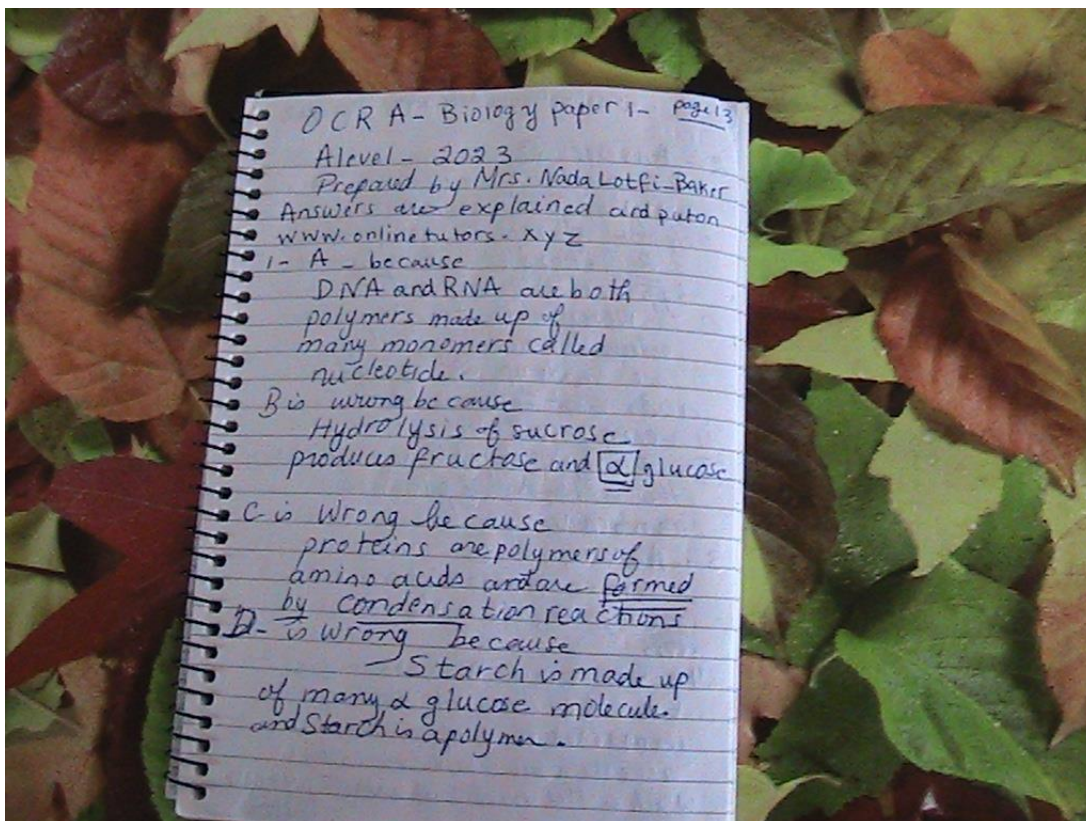 OCR A - Biology paper 1- page 13
A level - 2023
Prepared by Mrs. Nada Lotfi-Baker
Answers are explained and put on
www.onlinetutors.xyz
1- A - because
DNA and RNA are both
polymers made up of
many monomers called
nucleotide.
B is wrong because
Hydrolysis of sucrose
produces fructose and α glucose
C- is Wrong because
proteins are polymers of
amino acids and are formed
by condensation reactions
D- is wrong because
- Starch is made up
of many α glucose molecule.
and Starch is a polymer.